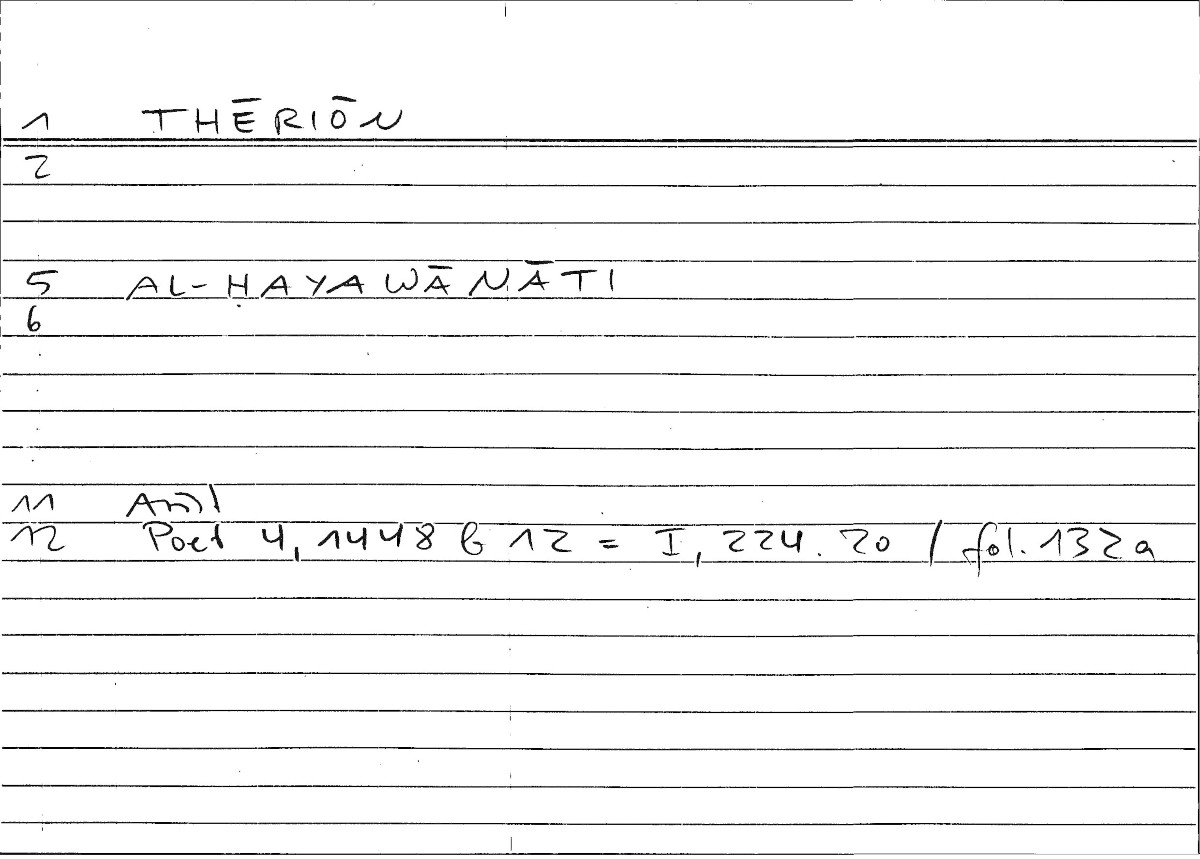 1 THĒRIŌN
2
5 AL-ḤAYAWĀNĀTI
6
11 Arist
12 Poet 4, 1448 b 12 = I, 224.20 / fol. 132a